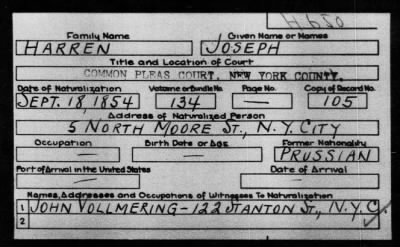 H 650
Family Name Given Name or Names
HARREN JOSEPH
Title and Location of Court
COMMON PLEAS COURT, NEW YORK COUNTY.
Date of Naturalization Volume or Bundle No. Page No. Copy of Record No.
SEPT. 18, 1854 134 — 105
Address of Naturalized Person
5 NORTH MOORE ST., N.Y. CITY
Occupation Birth Date or Age Former Nationality
— — PRUSSIAN
Port of Arrival in the United States Date of Arrival
— —
Names, Addresses and Occupations of Witnesses To Naturalization
1 JOHN VOLLMERING - 122 STANTON ST., N.Y.C.
2